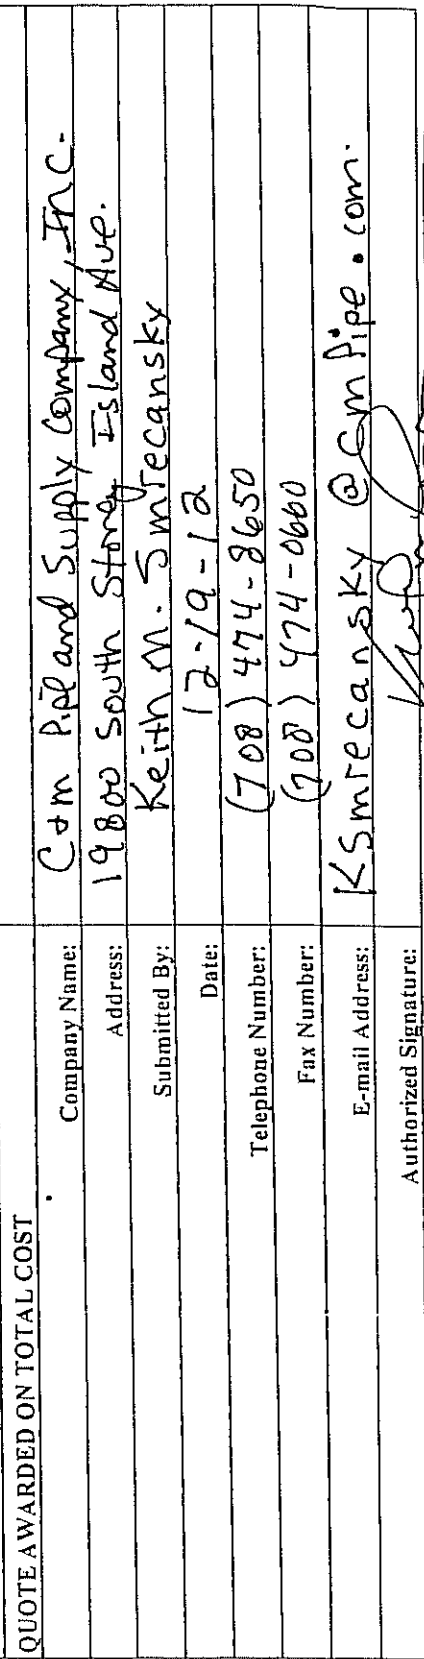 QUOTE AWARDED ON TOTAL COST
Company Name: C+m Pipe and Supply Company, Inc.
Address: 19800 South Stoney Island Ave.
Submitted By: Keith M. Smrecansky
Date: 12-19-12
Telephone Number: (708) 474-8650
Fax Number: (708) 474-0660
E-mail Address: KSmrecansky @ CmPipe.com.
Authorized Signature: